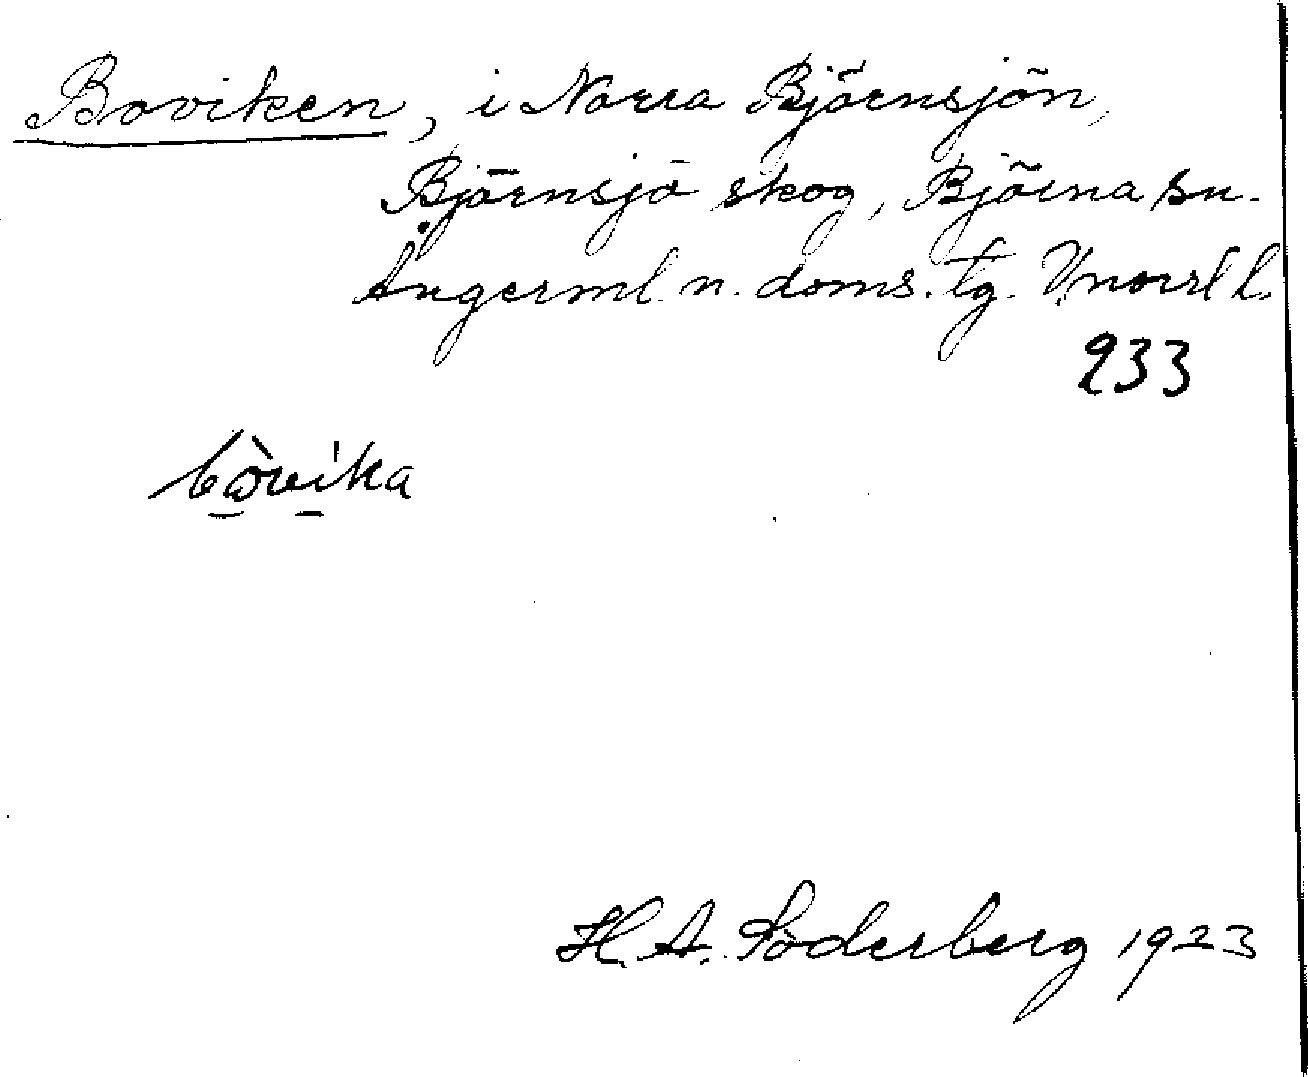 Boviken, i Norra Björnsjön,
Björnsjö skog, Björna sn.
Ångerml. n. doms. tg. Vnorrl l.
233
bòvika
H. A. Söderberg 1923